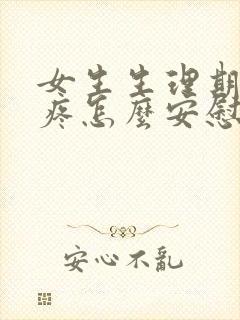 女生生理期
疼怎麼安慰
安心不亂